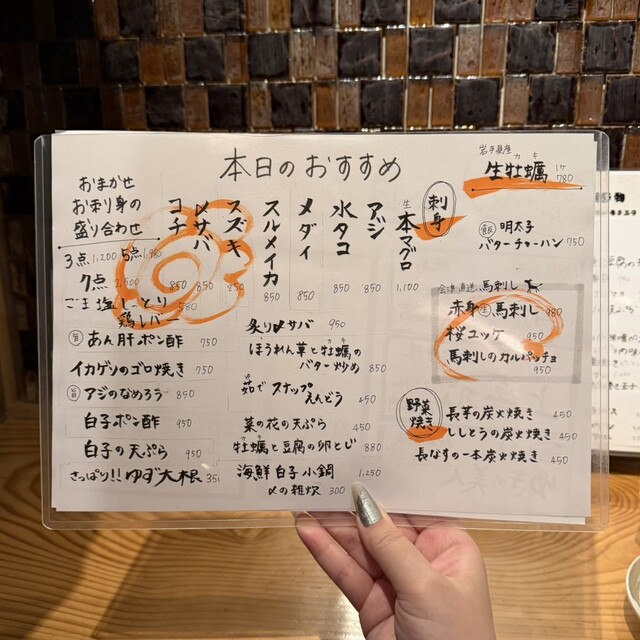 本日のおすすめ
岩手県産
カキ
生牡蠣 1ケ 780
飯 明太子
バターチャーハン 750
刺身
生 本マグロ 1,100
アジ 850
水タコ 850
メダイ 850
スルメイカ 850
スズキ 850
〆サバ 850
コチ 850
おまかせ
お刺身の
盛り合わせ
3点 1,200 5点 1,980
7点 2,500
ごま塩しっとり
鶏レバー 580
旨 あん肝ポン酢 750
イカゲソのゴロ焼き 750
旨 アジのなめろう 850
白子ポン酢 950
白子の天ぷら 950
さっぱり!!ゆず大根 350
炙り〆サバ 950
ほうれん草と牡蠣の
バター炒め 850
茹でスナップ
えんどう 450
菜の花の天ぷら 450
牡蠣と豆腐の卵とじ 880
海鮮白子小鍋 1,250
〆の雑炊 300
会津直送 馬刺し
赤身 生 馬刺し 980
桜ユッケ 950
馬刺しのカルパッチョ
950
野菜焼き
長芋の炭火焼き 450
ししとうの炭火焼き 450
長なすの一本炭火焼き 450